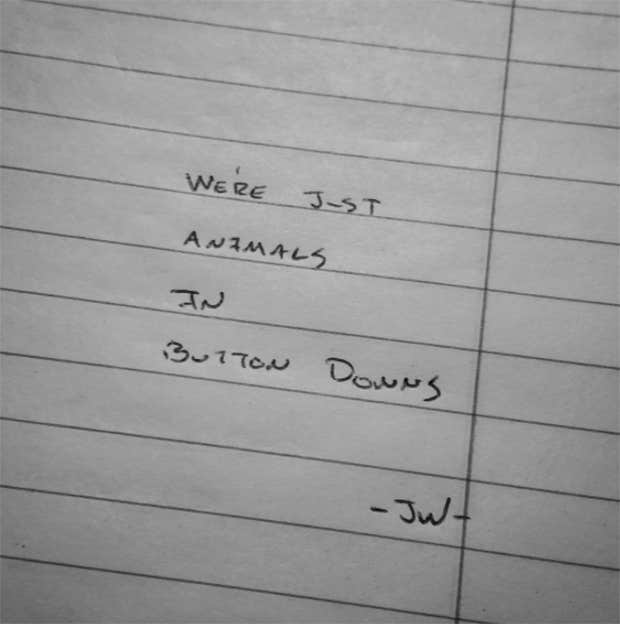 WE'RE JUST
ANIMALS
IN
BUTTON DOWNS
-JW-